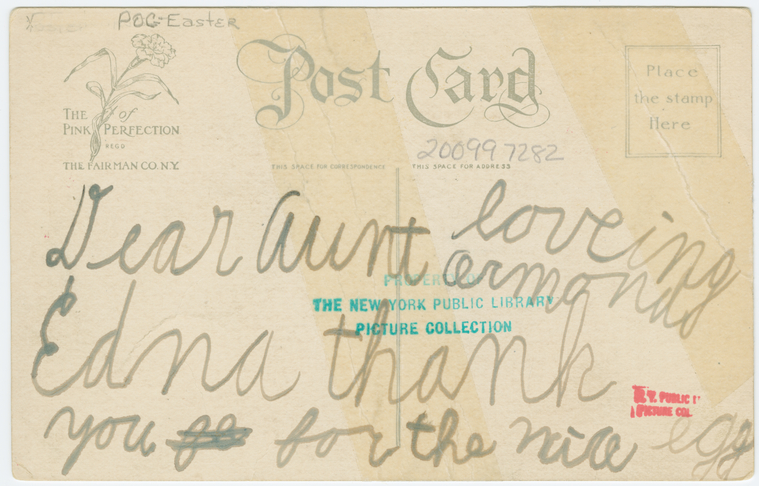 POC-Easter
Post Card
THE PINK of PERFECTION
REGD
THE FAIRMAN CO. N.Y.
Place
the stamp
Here
200997282
THIS SPACE FOR CORRESPONDENCE
THIS SPACE FOR ADDRESS
Dear Aunt
Edna thank
you for the nice egg
loveing
PROPERTY OF
THE NEW YORK PUBLIC LIBRARY
PICTURE COLLECTION
N. Y. PUBLIC
PICTURE COL